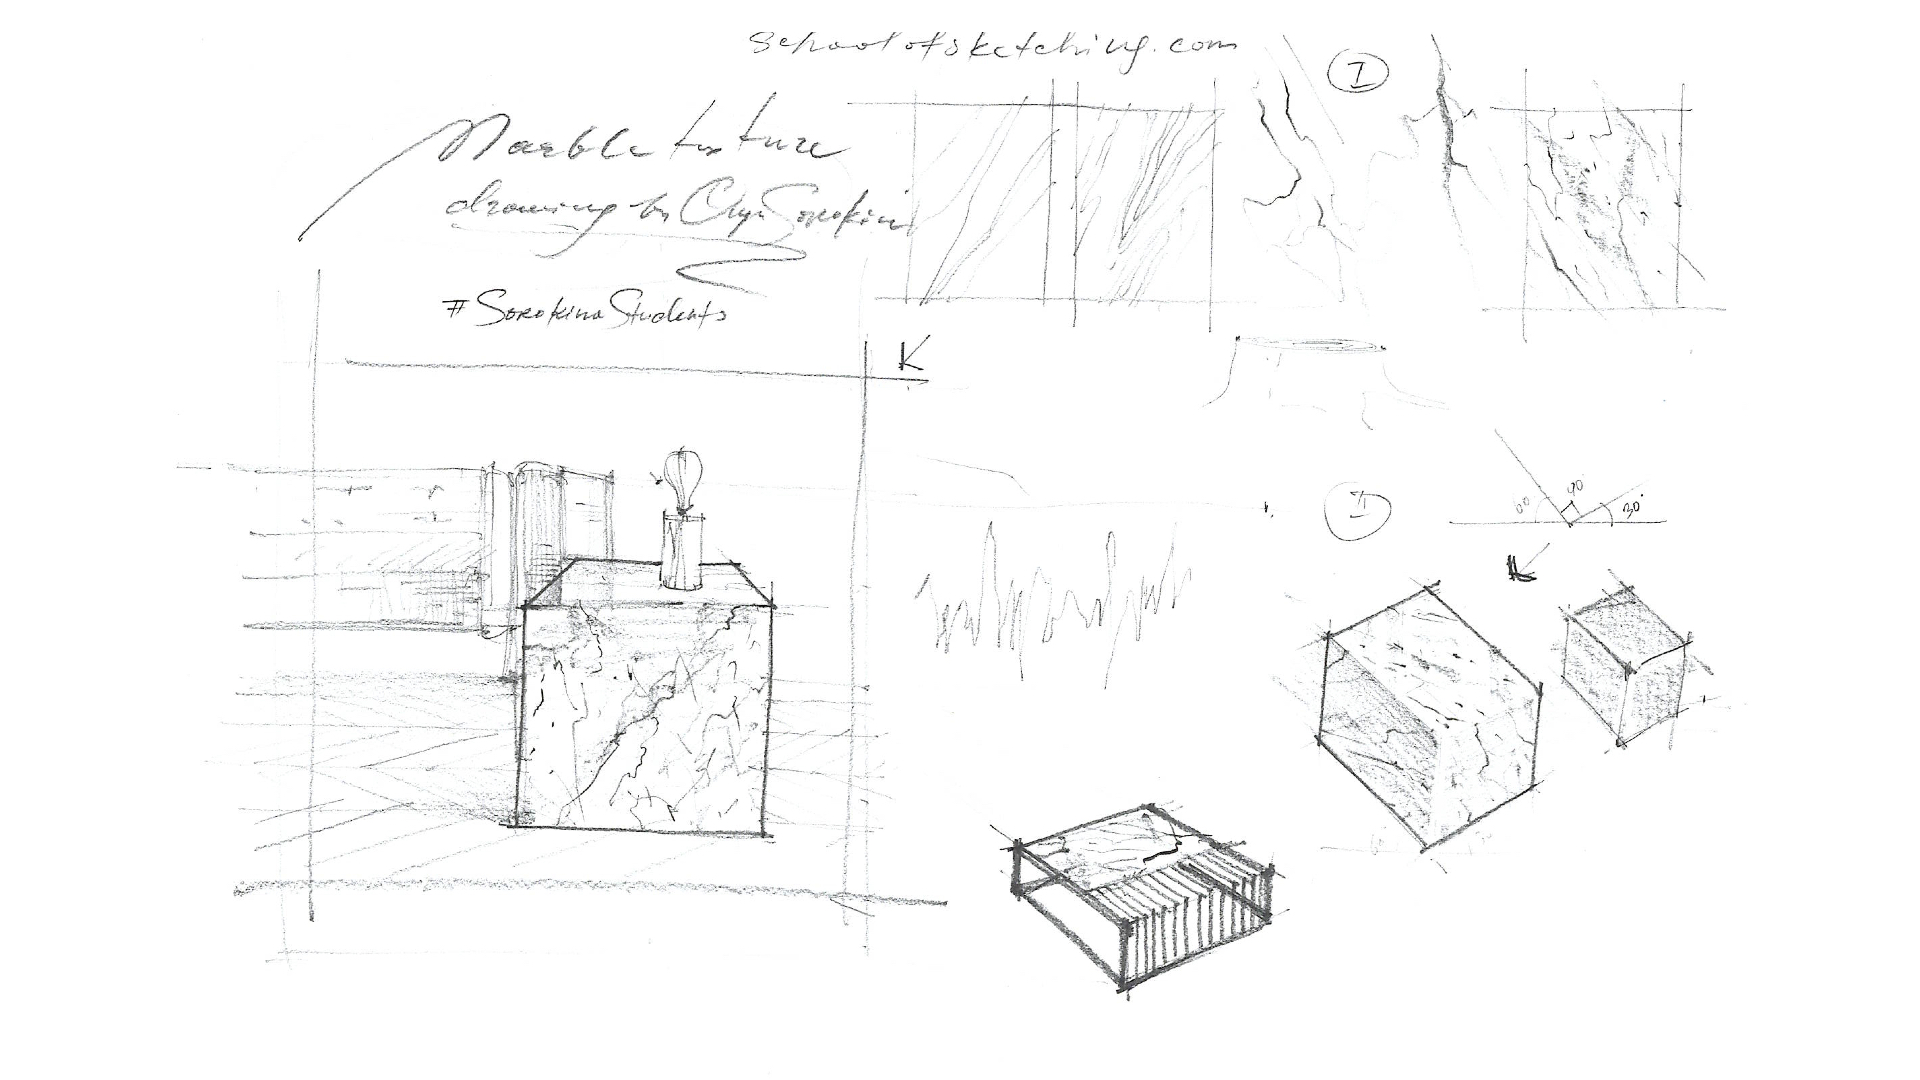 schoolofsketching.com
Marble texture
drawing by Olga Sorokina
#SorokinaStudents
I
II
60°
90
30°